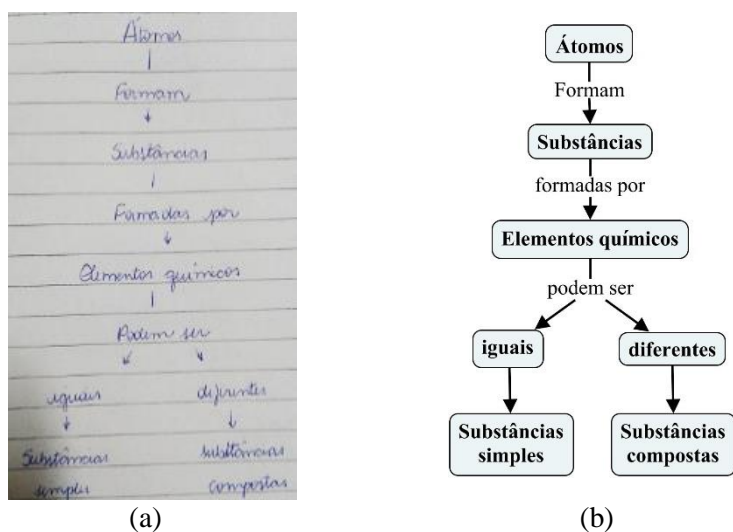 Átomos
Formam
Substâncias
Formadas por
Elementos químicos
Podem ser
iguais diferentes
Substâncias substâncias
simples compostas
(a)
Átomos
Formam
Substâncias
formadas por
Elementos químicos
podem ser
iguais diferentes
Substâncias Substâncias
simples compostas
(b)